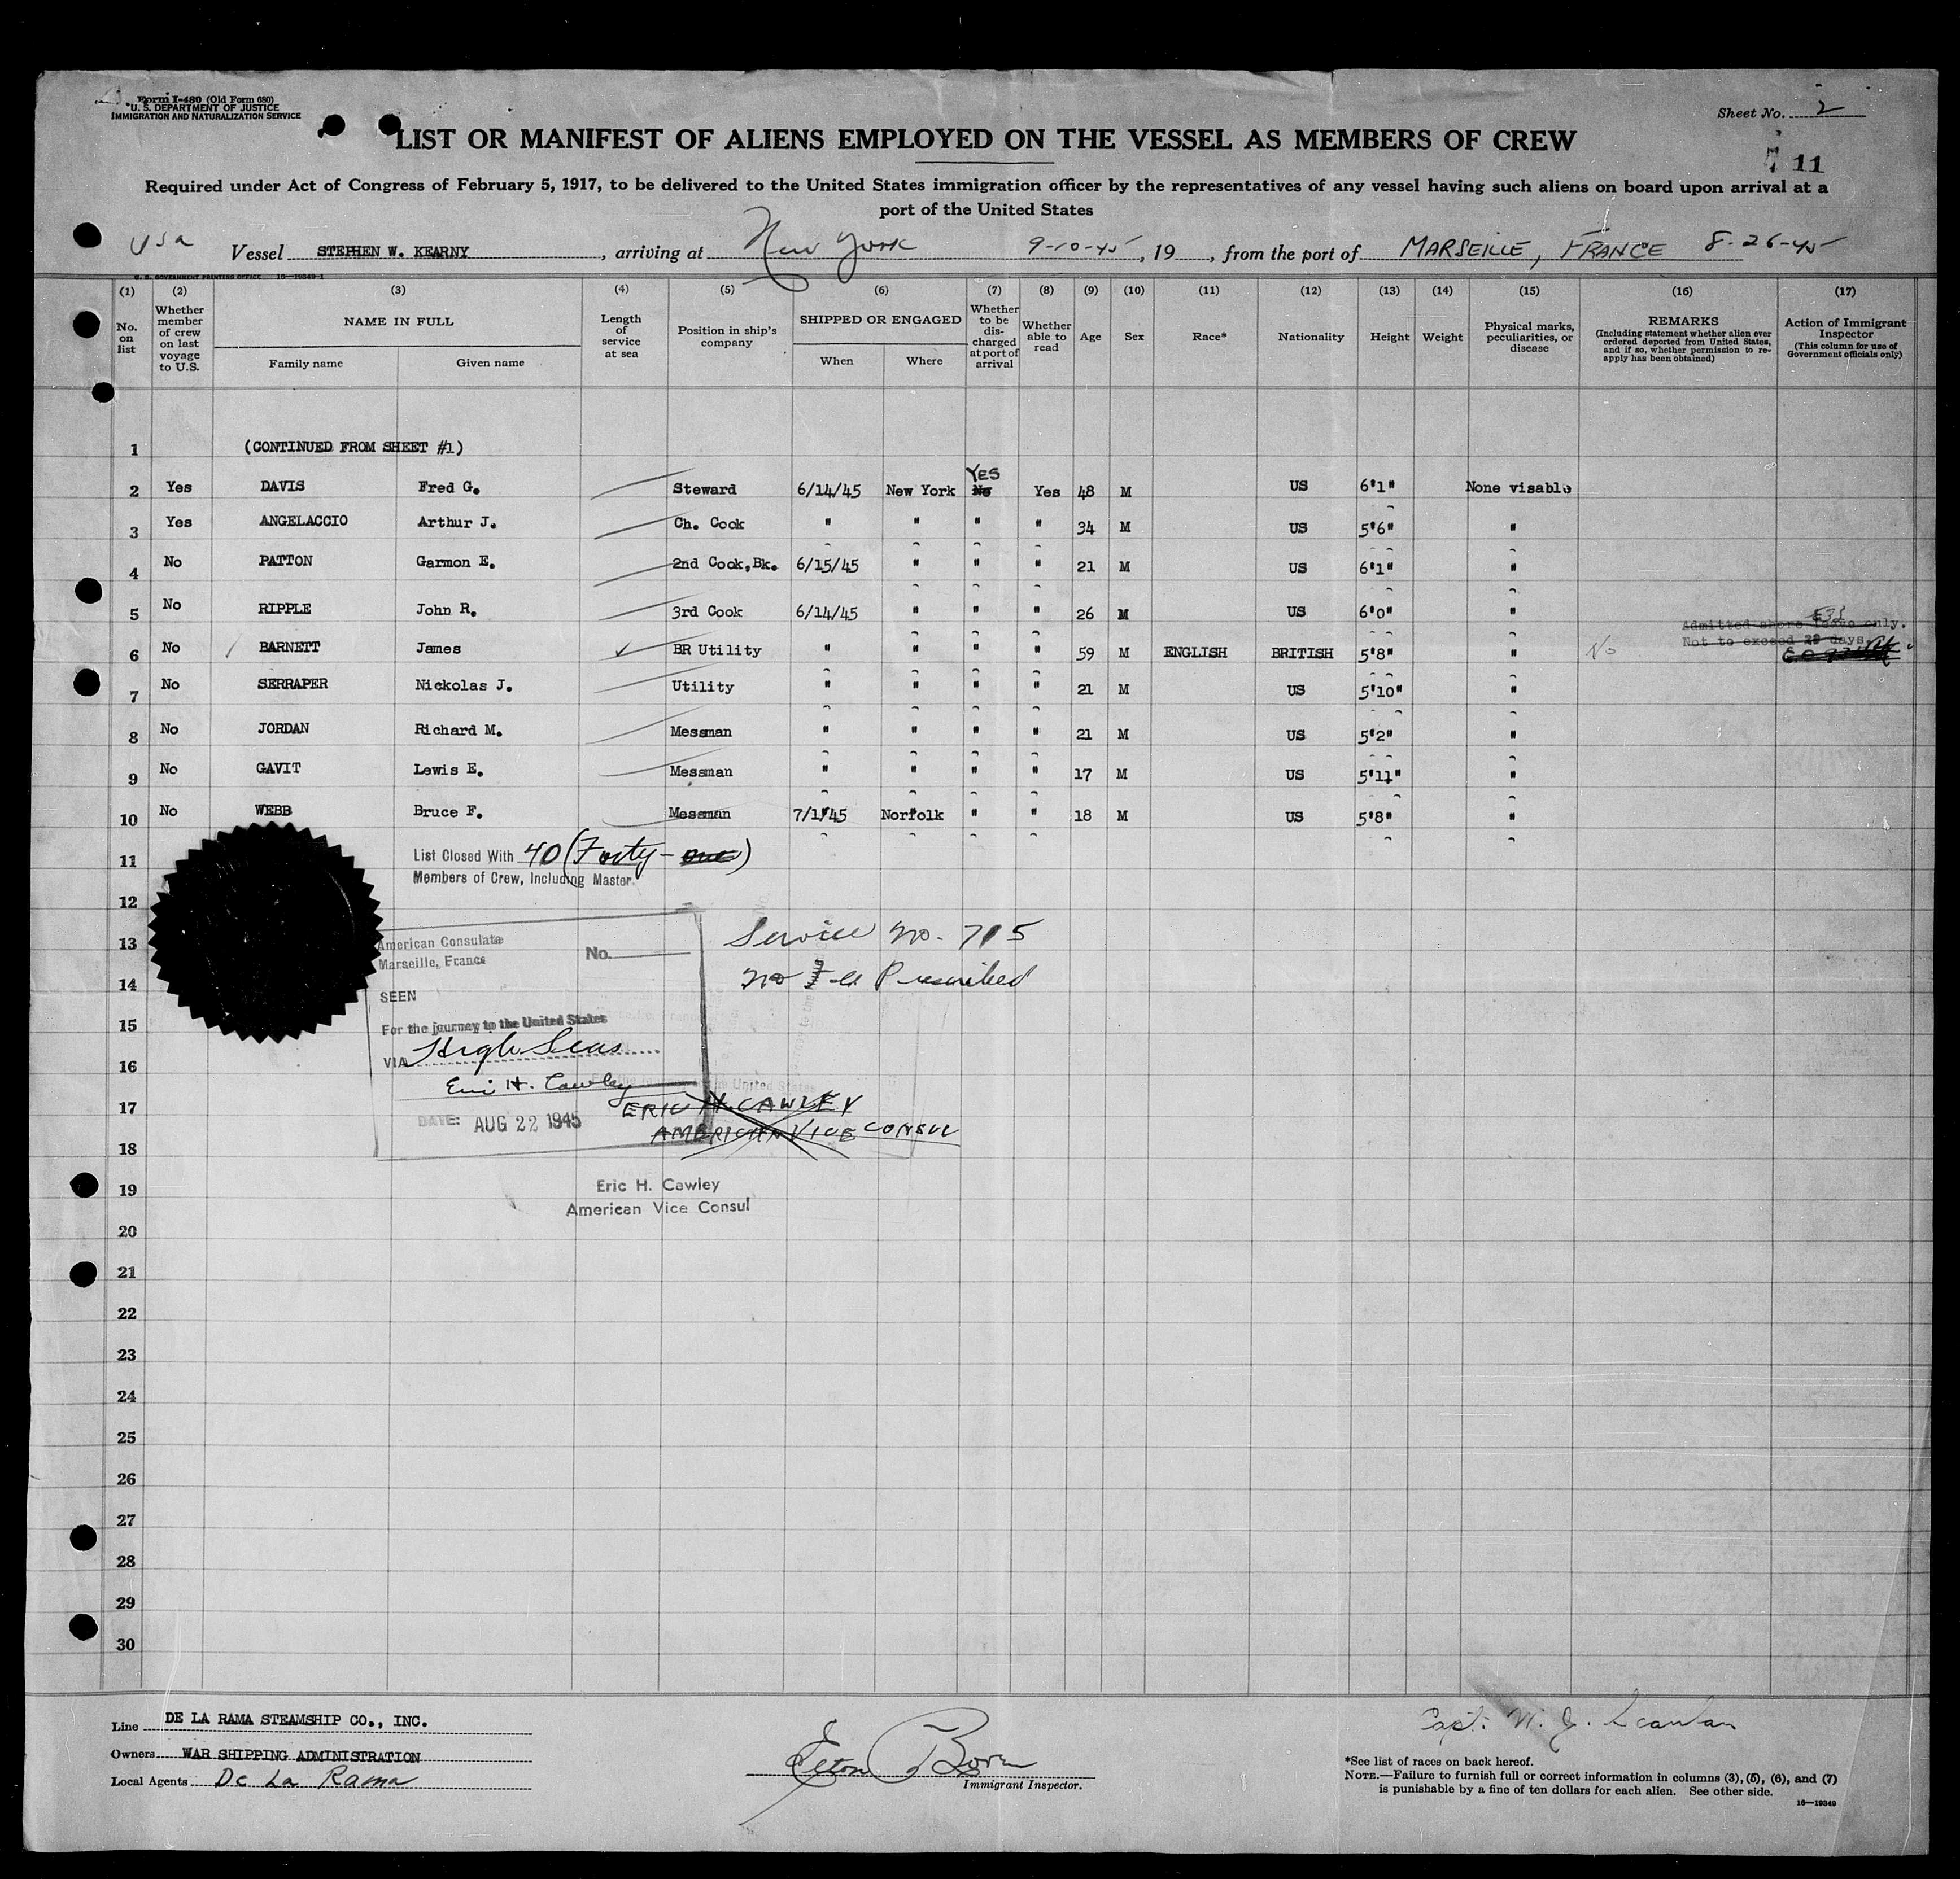 Form I-480 (Old Form 680)
U. S. DEPARTMENT OF JUSTICE
IMMIGRATION AND NATURALIZATION SERVICE
Sheet No. 2
LIST OR MANIFEST OF ALIENS EMPLOYED ON THE VESSEL AS MEMBERS OF CREW
11
Required under Act of Congress of February 5, 1917, to be delivered to the United States immigration officer by the representatives of any vessel having such aliens on board upon arrival at a
port of the United States
USA Vessel STEPHEN W. KEARNY, arriving at New York 9-10-45, 19, from the port of MARSEILLE, FRANCE 8-26-45
U. S. GOVERNMENT PRINTING OFFICE 16—19349-1
(1) (2) (3) (4) (5) (6) (7) (8) (9) (10) (11) (12) (13) (14) (15) (16) (17)
No. on list
Whether member of crew on last voyage to U.S.
NAME IN FULL
Family name
Given name
Length of service at sea
Position in ship's company
SHIPPED OR ENGAGED
When
Where
Whether to be discharged at port of arrival
Whether able to read
Age
Sex
Race*
Nationality
Height
Weight
Physical marks, peculiarities, or disease
REMARKS
(Including statement whether alien ever ordered deported from United States, and if so, whether permission to re-apply has been obtained)
Action of Immigrant Inspector
(This column for use of Government officials only)
1 (CONTINUED FROM SHEET #1)
YES
2 Yes DAVIS Fred G. Steward 6/14/45 New York No Yes 48 M US 6'1" None visable
3 Yes ANGELACCIO Arthur J. Ch. Cook " " " " 34 M US 5'6" "
4 No PATTON Garmon E. 2nd Cook,Bk. 6/15/45 " " " 21 M US 6'1" "
5 No RIPPLE John R. 3rd Cook 6/14/45 " " " 26 M US 6'0" "
Admitted shore leave only.
Not to exceed 29 days.
6 No BARNETT James BR Utility " " " " 59 M ENGLISH BRITISH 5'8" " No
7 No SERRAPER Nickolas J. Utility " " " " 21 M US 5'10" "
8 No JORDAN Richard M. Messman " " " " 21 M US 5'2" "
9 No GAVIT Lewis E. Messman " " " " 17 M US 5'11" "
10 No WEBB Bruce F. Messman 7/1/45 Norfolk " " 18 M US 5'8" "
11 List Closed With 40 (Forty-one)
Members of Crew, Including Master.
12
13 American Consulate No. Service No. 715
Marseille, France
14 No Fee Prescribed
SEEN
15 For the journey to the United States
16 VIA High Seas
Eric H. Cawley
17 ERIC H. CAWLEY
DATE: AUG 22 1945
AMERICAN VICE CONSUL
18
19 Eric H. Cawley
American Vice Consul
20
21
22
23
24
25
26
27
28
29
30
Line DE LA RAMA STEAMSHIP CO., INC.
Owners WAR SHIPPING ADMINISTRATION
Local Agents De La Rama
Immigrant Inspector.
Capt. W. J. Scanlan
*See list of races on back hereof.
NOTE.—Failure to furnish full or correct information in columns (3), (5), (6), and (7)
is punishable by a fine of ten dollars for each alien. See other side.
16—19349